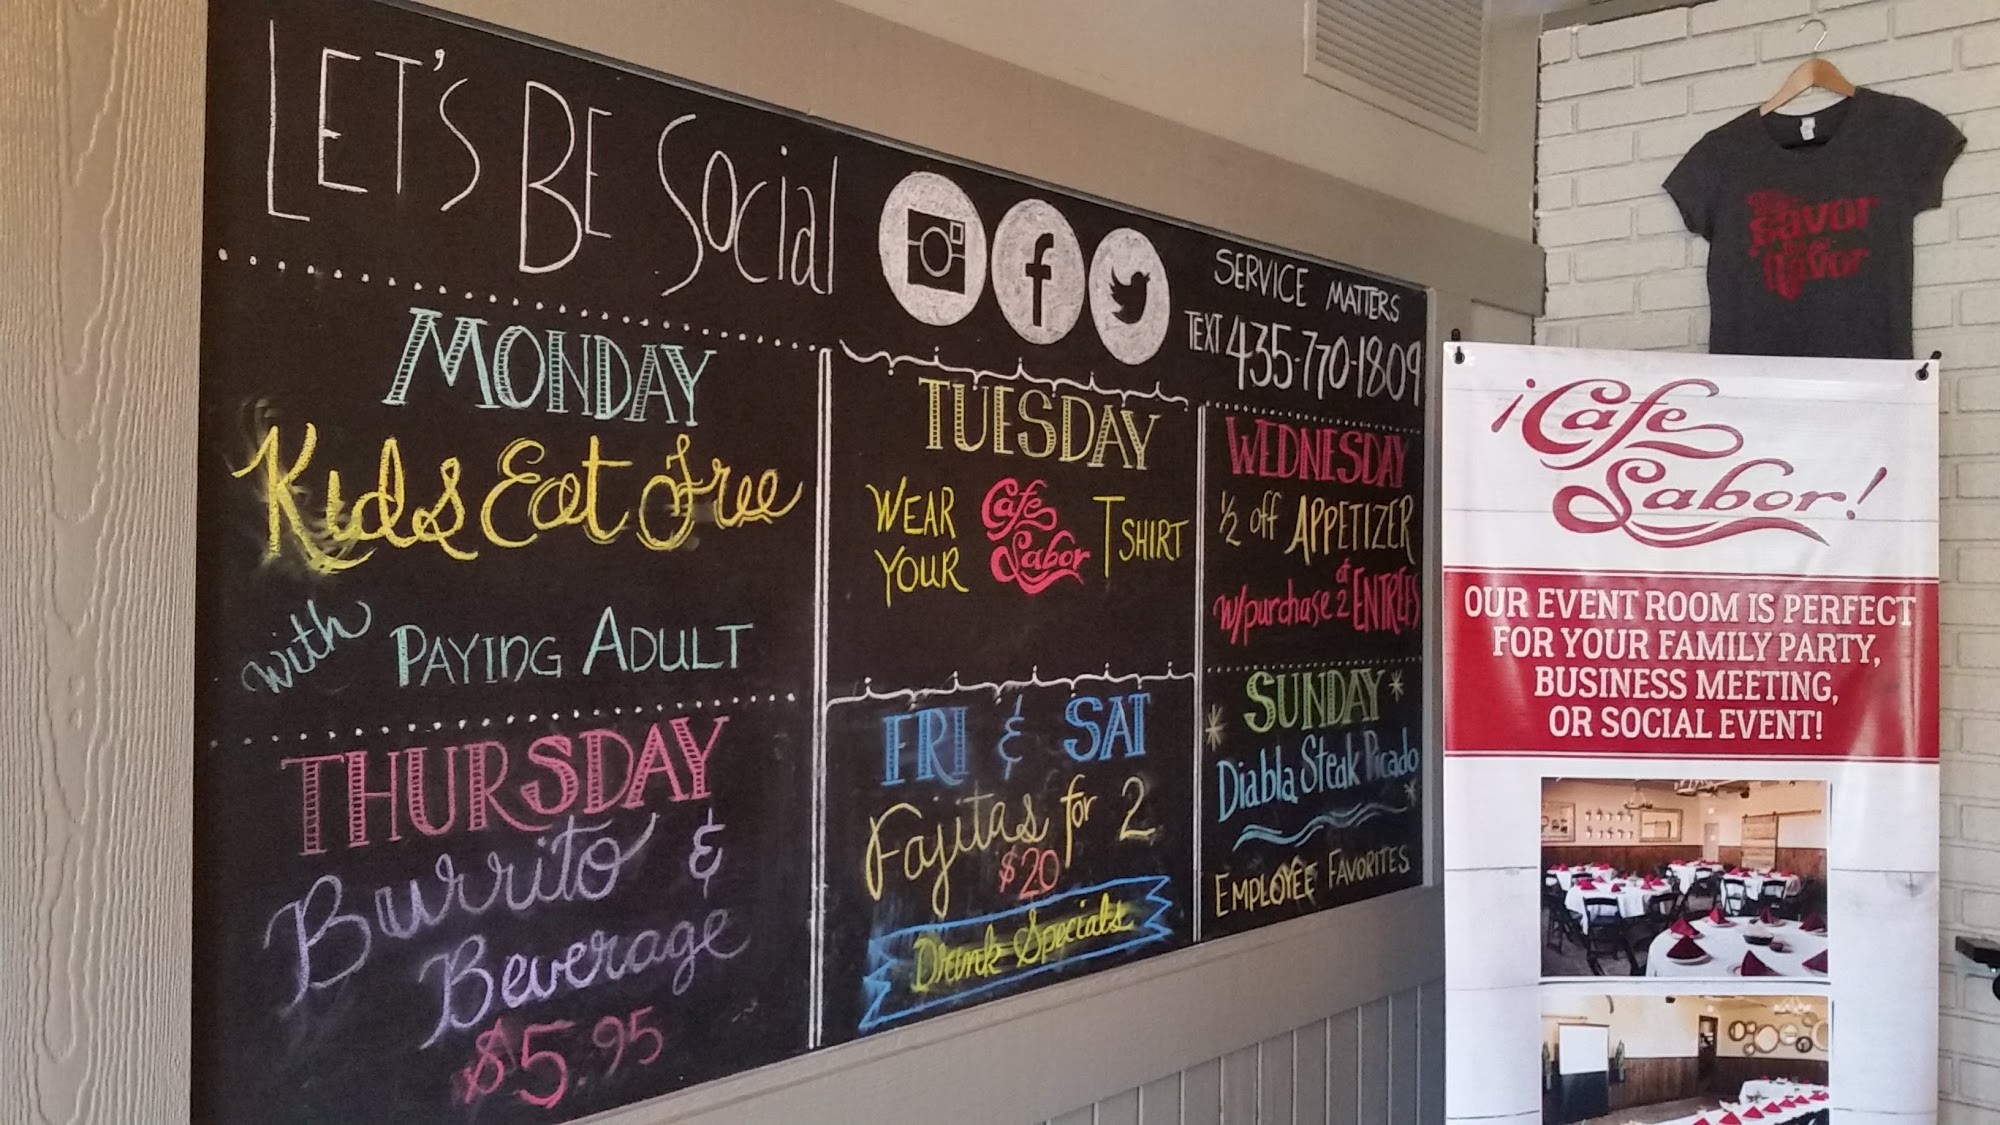 LET'S BE Social
SERVICE MATTERS
TEXT 435-770-1809
MONDAY
Kids Eat Free
with PAYING ADULT
TUESDAY
WEAR YOUR Cafe Sabor T SHIRT
WEDNESDAY
1/2 off APPETIZER
w/purchase of 2 ENTREES
THURSDAY
Burrito &
Beverage
$5.95
FRI & SAT
Fajitas for 2
$20
Drink Specials
SUNDAY
Diabla Steak Picado
EMPLOYEE FAVORITES
The
Savor
flavor
¡Cafe
Sabor!
OUR EVENT ROOM IS PERFECT
FOR YOUR FAMILY PARTY,
BUSINESS MEETING,
OR SOCIAL EVENT!